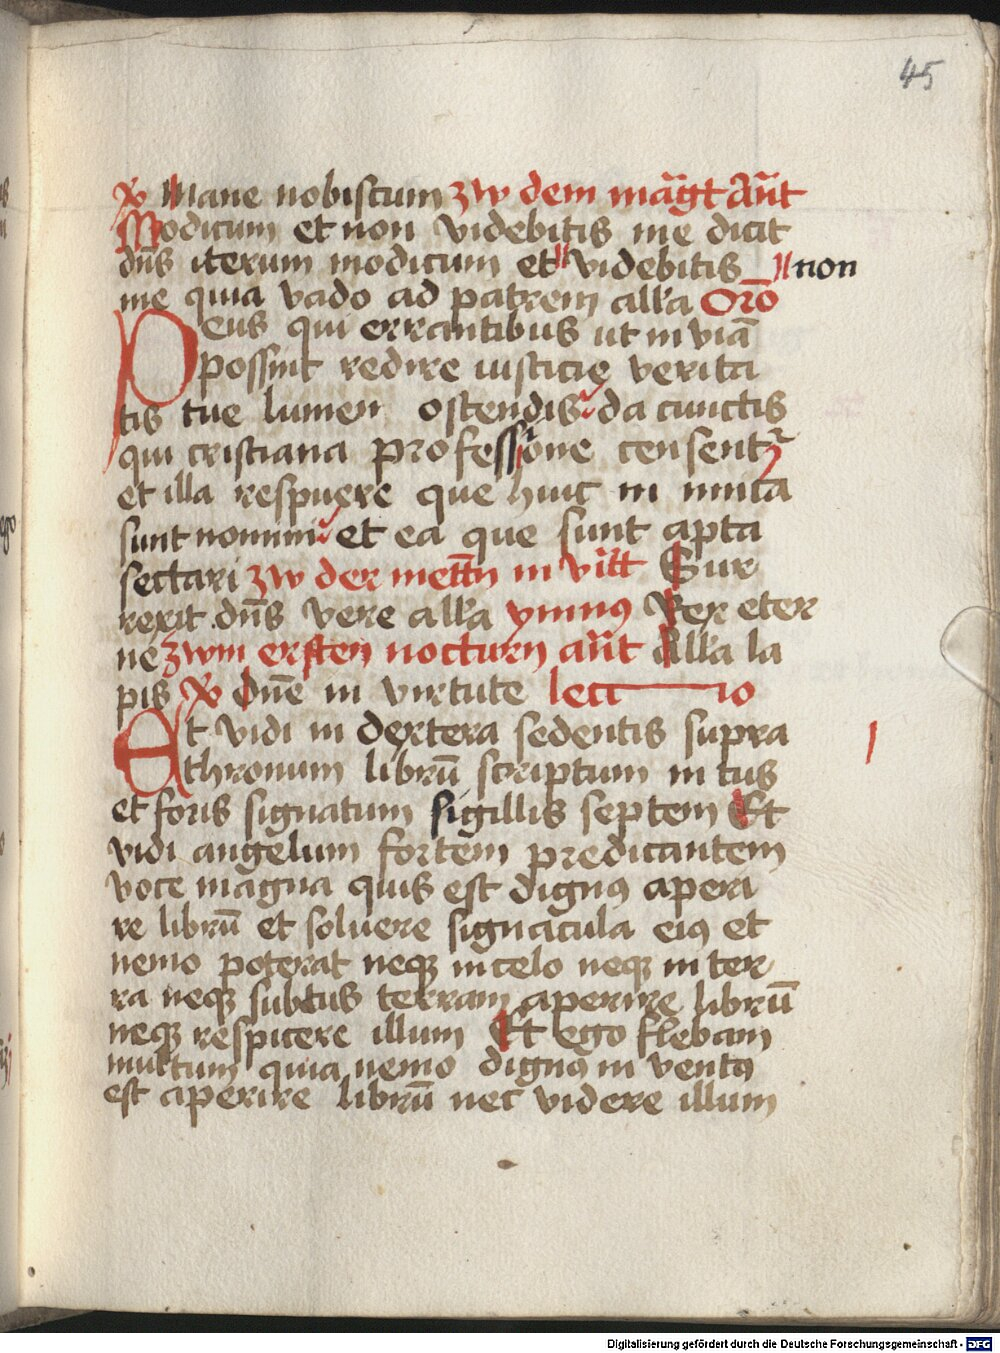 45
℣ Mane nobiscum zw dem mãgt Añt
Modicum et non videbitis me dicit
dñs iterum modicum et || videbitis || non
me quia vado ad patrem all'a Orõ
Deus qui errantibus ut in viã
possint redire iusticie verita
tis tue lumen ostendis da cunctis
qui cristiana professione censent᷑
et illa respuere que huic in imica
sunt nomini et ea que sunt apta
sectari zw der mettñ in vitt Sur
rexit dñs vere all'a ymnꝰ Rex eter
ne zwm ersten nocturn añt All'a la
pis ℣ Dñe in virtute lectio
Et vidi in dextera sedentis supra
thronum librũ scriptum in tus I
et foris signatum sigillis septem Et
vidi angelum fortem predicantem
voce magna quis est dignꝰ aperi
re librũ et soluere signacula eiꝰ et
nemo poterat neqꝫ in celo neqꝫ in ter
ra neqꝫ subtus terram aperire librũ
neqꝫ respicere illum Et ego flebam
multum quia nemo dignꝰ in ventꝰ
est aperire librũ nec videre illum
Digitalisierung gefördert durch die Deutsche Forschungsgemeinschaft - DFG